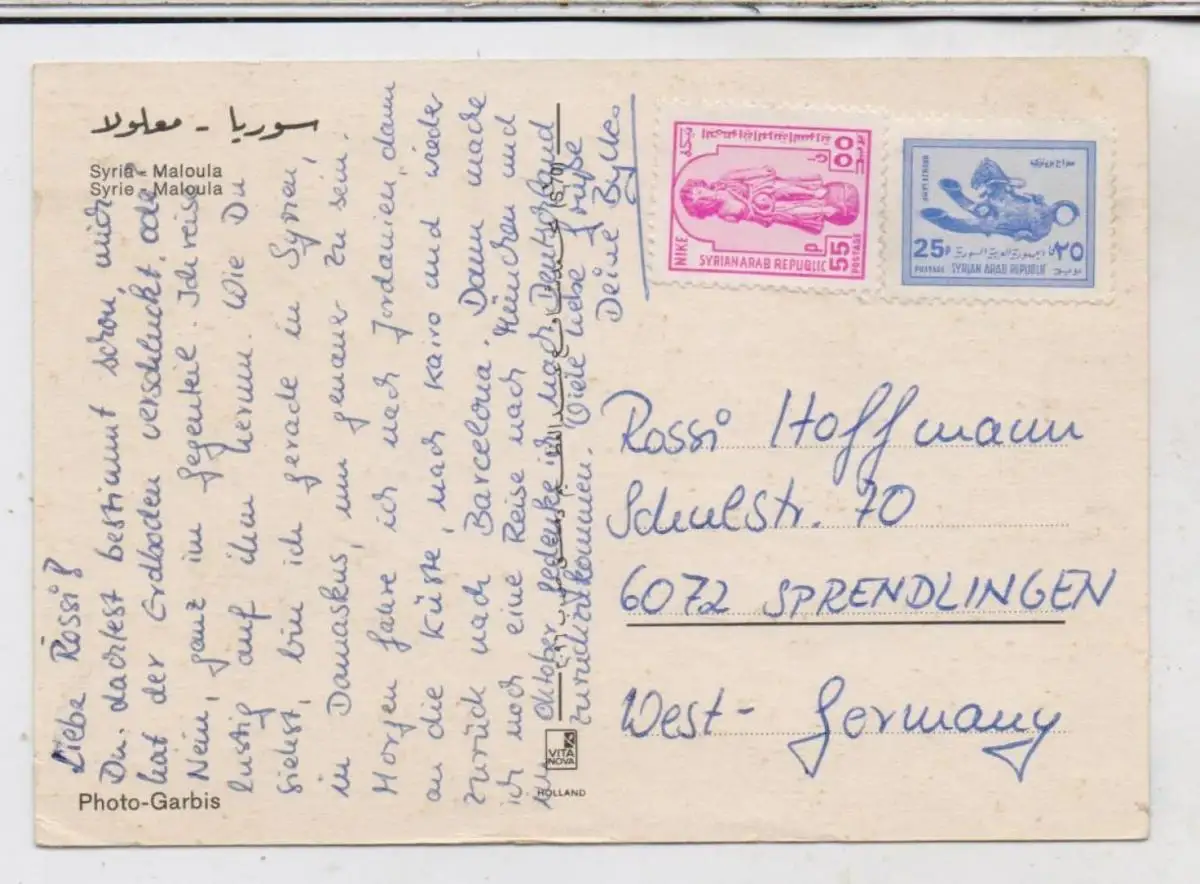 سوريا - معلولا
Syria - Maloula
Syrie - Maloula
Liebe Rossi!
Du dachtest bestimmt schon, mich
hat der Erdboden verschluckt. ode
Nein, ganz im Gegenteil. Ich reise
lustig auf ihm herum. Wie Du
siehst, bin ich gerade in Syrien,
in Damaskus, um genauer zu sein.
Morgen fahre ich nach Jordanien, dann
an die Küste, nach Kairo und wieder
zurück nach Barcelona. Dann mache
ich noch eine Reise nach München und
im Oktober gedenke ich nach Deutschland
zurückzukommen. Viele liebe Grüße
Deine
Photo-Garbis
VITA
NOVA
HOLLAND
NIKE
SYRIAN ARAB REPUBLIC
55 P
POSTAGE
٥٥
بريد
سراج برونزي
BRONZE LAMP
25P
POSTAGE
الجمهورية العربية السورية
SYRIAN ARAB REPUBLIC
٢٥
بريد
Rossi Hoffmann
Schulstr. 70
6072 SPRENDLINGEN
West-Germany